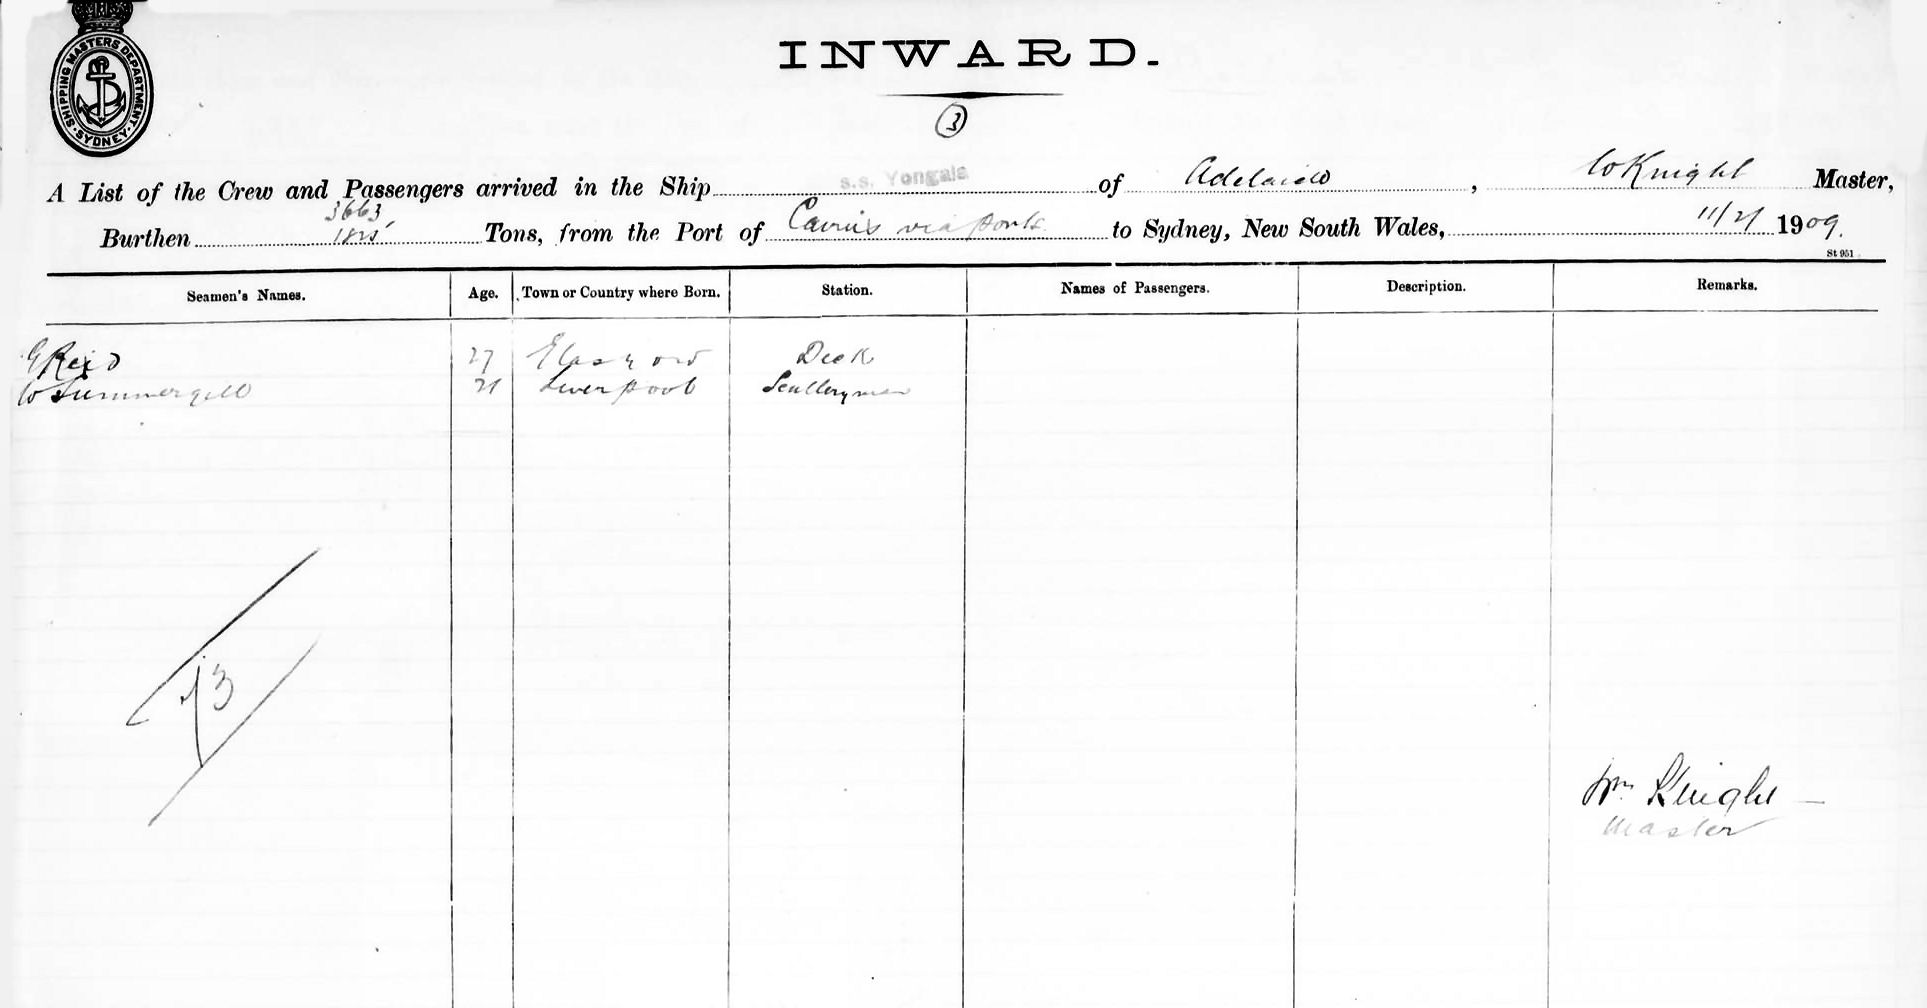 SHIPPING MASTERS DEPARTMENT. SYDNEY.
INWARD.
3
A List of the Crew and Passengers arrived in the Ship s.s. Yongala of Adelaide, W Knight Master,
3663
Burthen 1825 Tons, from the Port of Cairns via ports to Sydney, New South Wales, 1909.
St 951
Seamen's Names. Age. Town or Country where Born. Station. Names of Passengers. Description. Remarks.
G Reid 27 Glasgow Deck
W Summergill 21 Liverpool Sculleryman
73
Wm Knight
Master